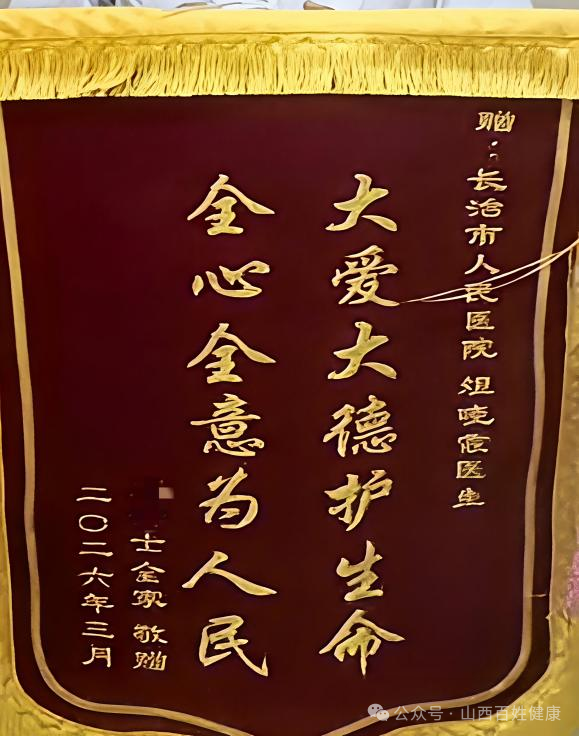 赠：长治市人民医院 俎医生
大爱大德护生命
全心全意为人民
士全家 敬赠
二〇二六年三月
公众号·山西百姓健康